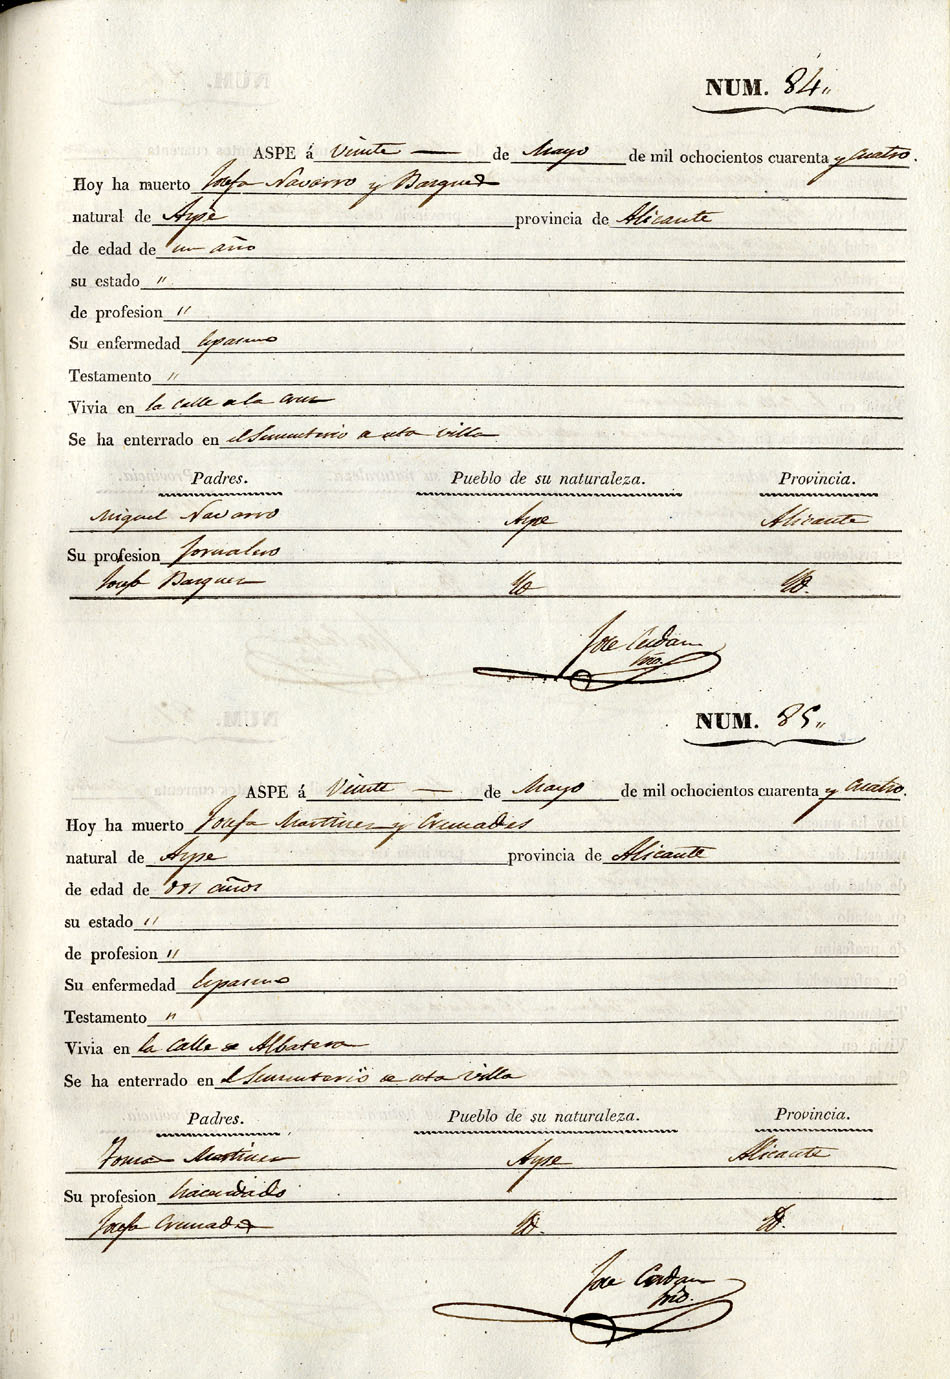 NUM. 84,,
ASPE á Veinte — de Mayo de mil ochocientos cuarenta y Cuatro.
Hoy ha muerto Josefa Navarro y Barques
natural de Aspe provincia de Alicante
de edad de un año
su estado ,,
de profesion ,,
Su enfermedad espasmo
Testamento ,,
Vivia en la calle de la Cruz
Se ha enterrado en el Sementerio de esta villa
Padres. Pueblo de su naturaleza. Provincia.
Miguel Navarro Aspe Alicante
Su profesion Jornalero
Josefa Barques Yd Yd.
Jose Cerdan
NUM. 85,,
ASPE á Veinte — de Mayo de mil ochocientos cuarenta y Cuatro.
Hoy ha muerto Josefa Martinez y Cremades
natural de Aspe provincia de Alicante
de edad de años
su estado ,,
de profesion ,,
Su enfermedad espasmo
Testamento ,,
Vivia en la Calle de Albatera
Se ha enterrado en el Sementerio de esta villa
Padres. Pueblo de su naturaleza. Provincia.
Tomas Martinez Aspe Alicante
Su profesion hacendado
Josefa Cremades Yd. Yd.
Jose Cerdan